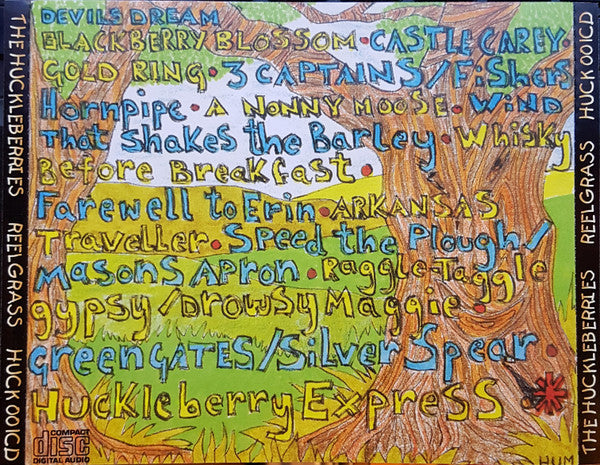 DEVILS DREAM
BLACKBERRY BLOSSOM • CASTLE CAREY •
GOLD RING • 3 CAPTAINS / FiSHers
Hornpipe • A NONNY MOOSE • WiND
That Shakes the Barley • Whisky
Before Breakfast •
Farewell to Erin • ARKANSAS
Traveller • Speed the Plough /
Masons Apron • Raggle-Taggle
gypsy / Drowsy Maggie •
greenGATES / SiLver Spear •
Huckleberry Express
COMPACT
disc
DIGITAL AUDIO
HUM
THE HUCKLEBERRIES REELGRASS HUCK 001CD
THE HUCKLEBERRIES REELGRASS HUCK 001CD